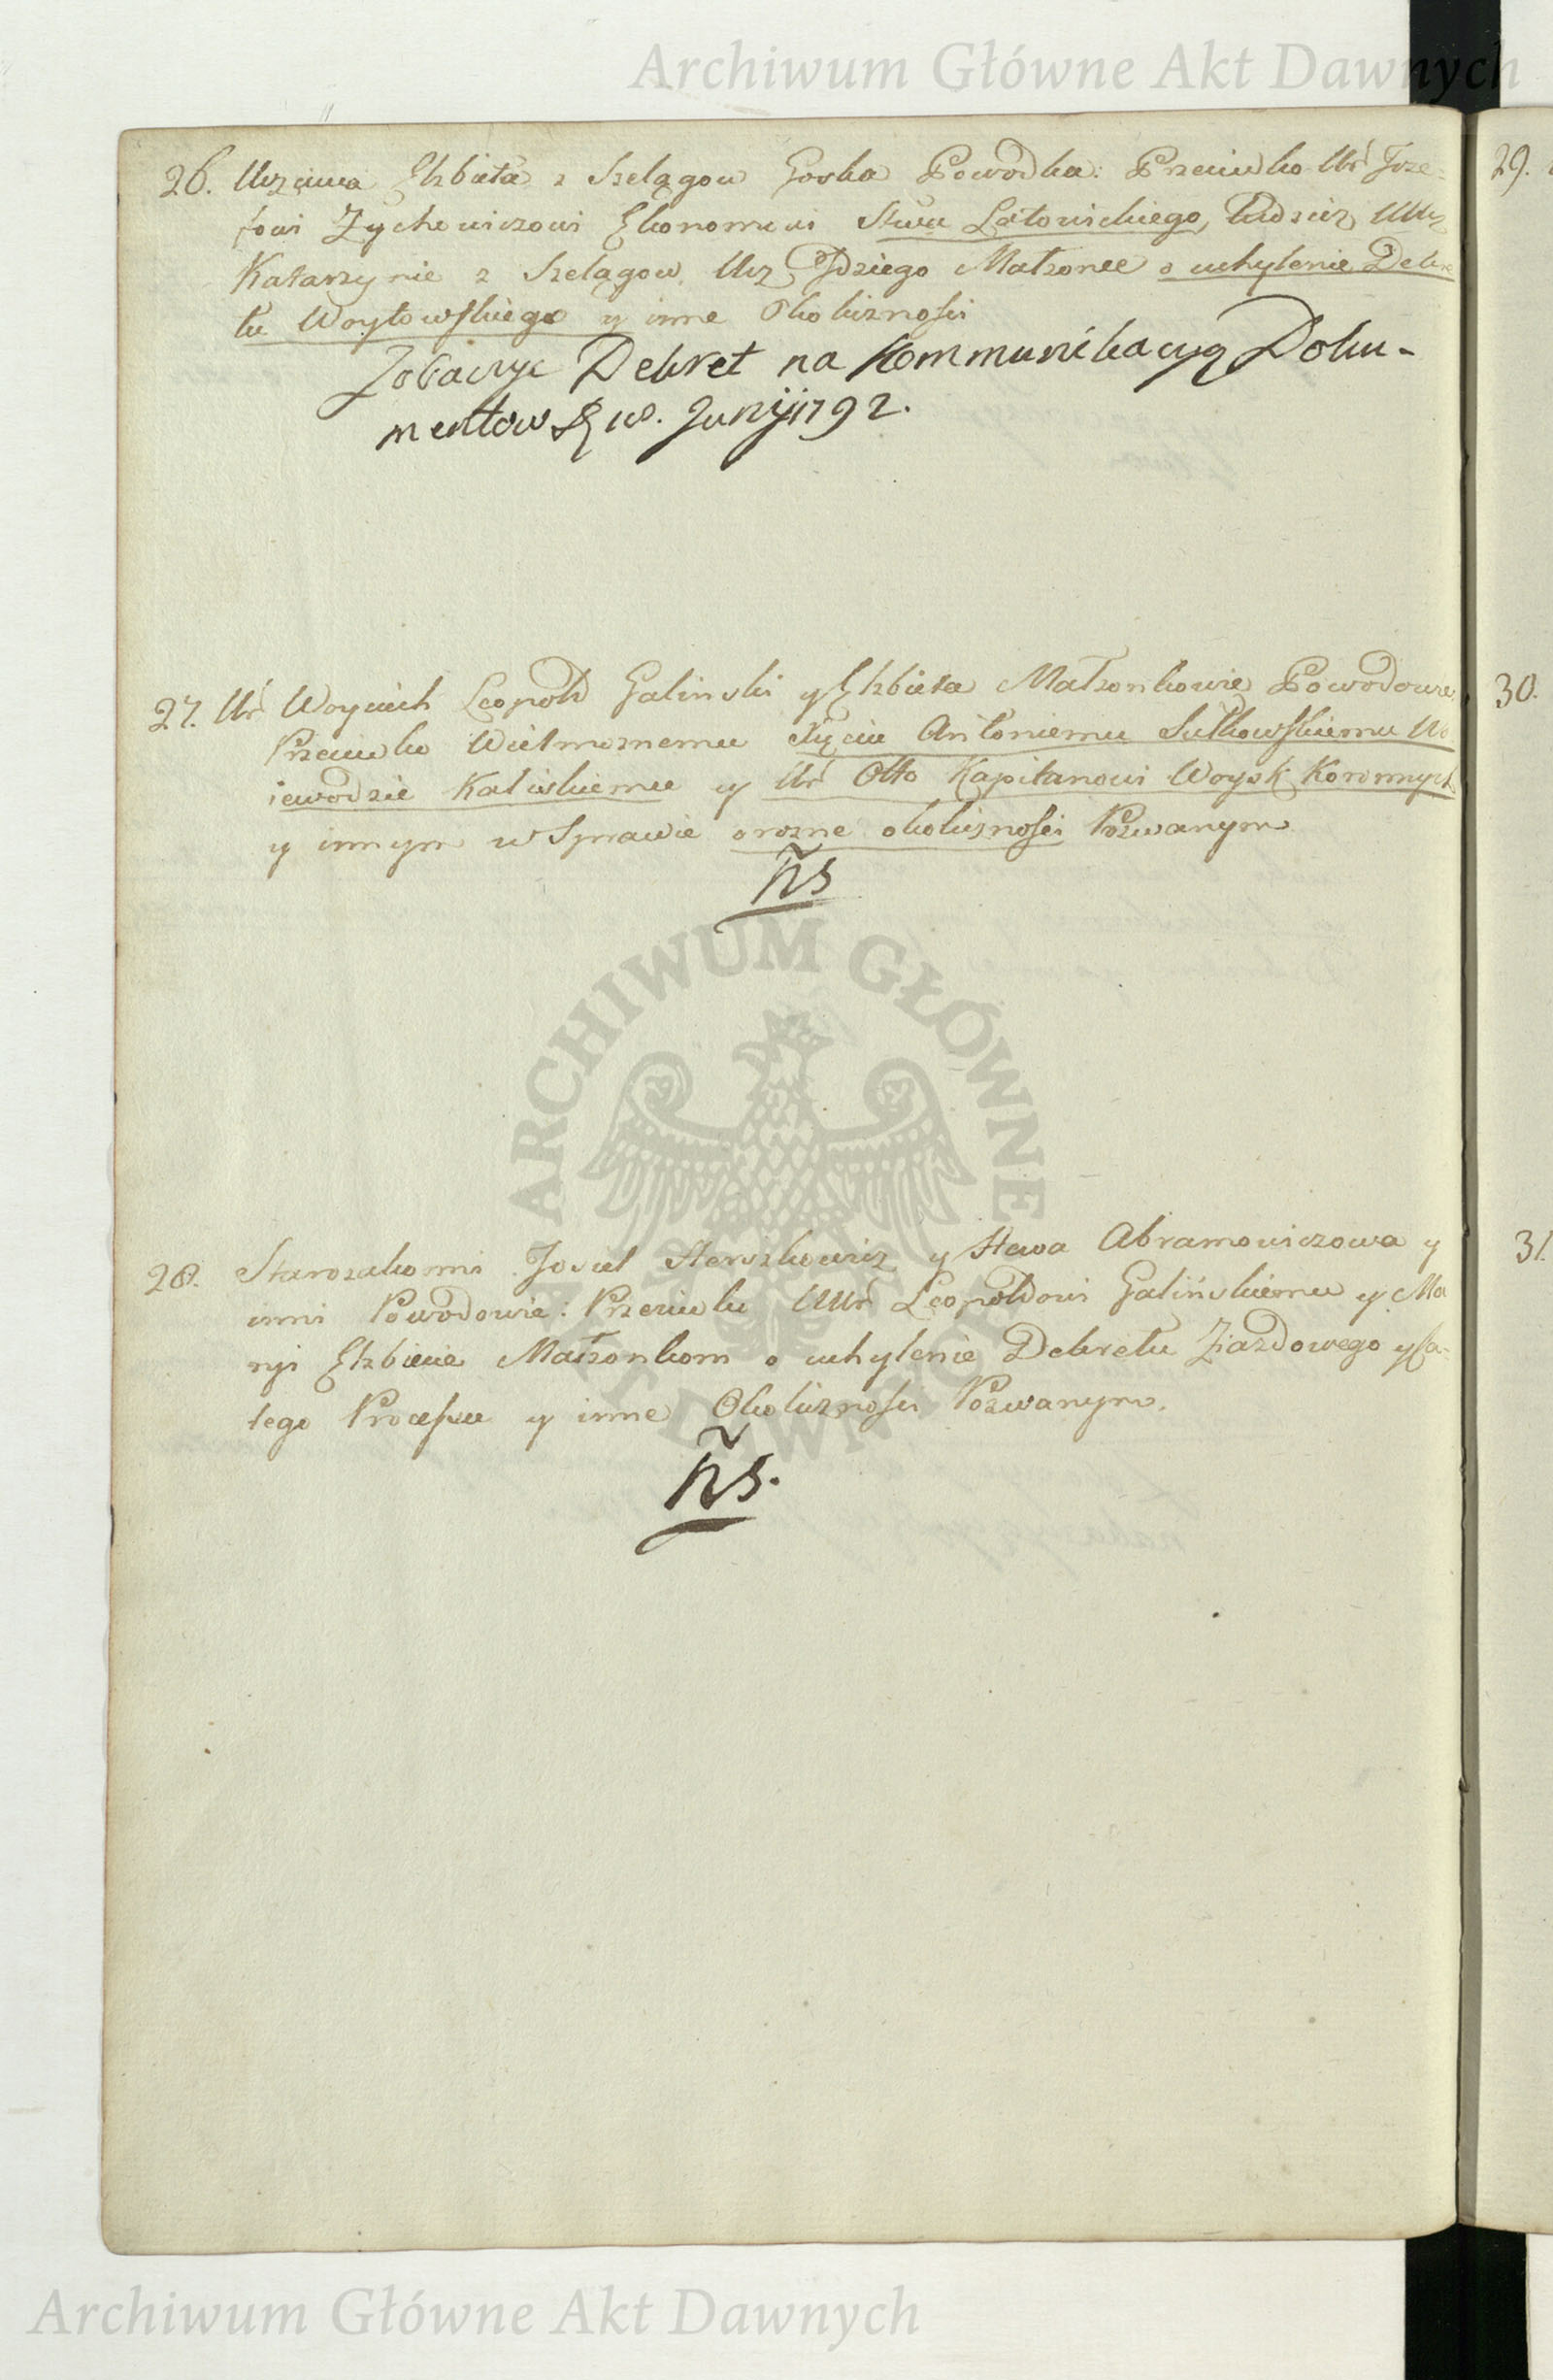 Archiwum Główne Akt Dawnych
26. Uczciwa Elzbieta z Szelągow Gorska Powodka: Przeciwko Ur Joze-
fowi Zychowiczowi Ekonomowi Stwa Latowickiego, tudziez
Katarzynie z Szelągow Ucz Jdziego Małzonce o uchylenie Dekre
tu Woytowskiego y inne Okolicznosci
Zobaczyc Dekret na Kommunikacyą Doku-
mentow Junij 1792.
27. Ur Woyciech Leopold Galinski y Elzbieta Małzonkowie Powodowie
Przeciwko Wielmoznemu Xięciu Antoniemu Sułkowskiemu Wo
iewodzie Kaliskiemu y Ur Otto Kapitanowi Woysk Koronnych
y innym w Sprawie o rozne okolicznosci Pozwanym
ñs
28. Starozakonni Josiel Herszkowicz y Hawa Abramowiczowa y
inni Powodowie: Przeciwko UUr Leopoldowi Galińskiemu y Ma
ryi Elzbiecie Małzonkom o uchylenie Dekretu Ziazdowego y ca-
łego Processu y inne Okolicznosci Pozwanym.
ñs.
29.
30.
31.
ARCHIWUM GŁÓWNE AKT DAWNYCH
Archiwum Główne Akt Dawnych